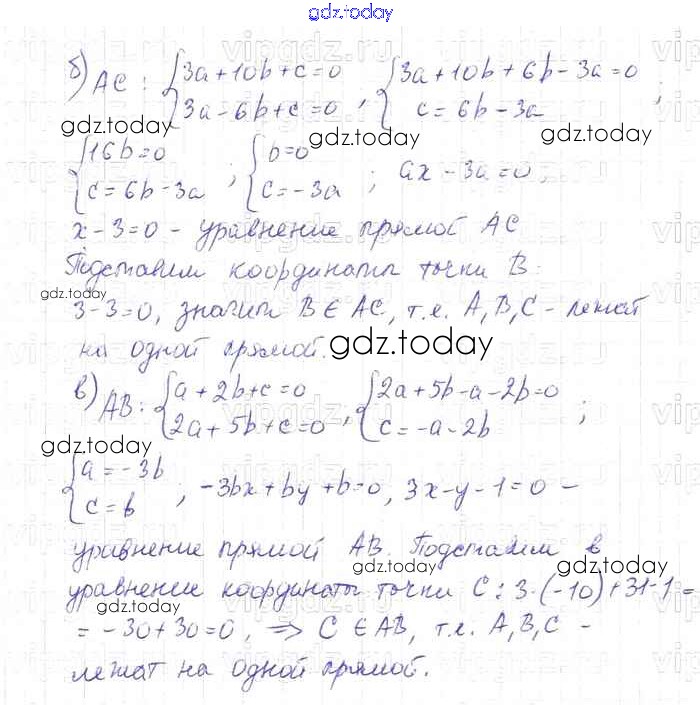 gdz.today
б) AC: {3a+10b+c=0 {3a+10b+6b-3a=0
{3a-6b+c=0 , {c=6b-3a ;
gdz.today gdz.today gdz.today
{16b=0 {b=0
{c=6b-3a ; {c=-3a ; ax-3a=0;
x-3=0 - уравнение прямой AC
Подставим координаты точки B:
gdz.today
3-3=0, значит B∈AC, т.е. A,B,C - лежат
на одной прямой.
gdz.today
в) AB: {a+2b+c=0 {2a+5b-a-2b=0
{2a+5b+c=0 , {c=-a-2b ;
gdz.today
{a=-3b
{c=b ; -3bx+by+b=0, 3x-y-1=0 -
уравнение прямой AB. Подставим в
gdz.today
уравнение координаты точки C: 3·(-10)+31-1=
gdz.today gdz.today
=-30+30=0, ⇒ C∈AB, т.е. A,B,C -
лежат на одной прямой.